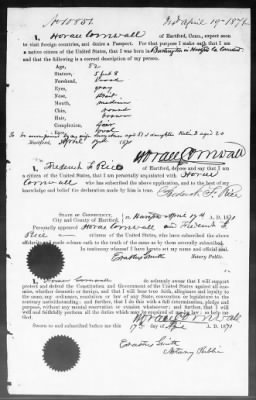 No 18856 Isd April 19-1871
I, Horace Cornwall of Hartford, Conn., expect soon
to visit foreign countries, and desire a Passport. For that purpose I make oath that I am
a native citizen of the United States, that I was born in Burlington in Hartford Co Connecticut
and that the following is a correct description of my person.
Age, 52
Stature, 5 feet 8
Forehead,
Eyes, gray
Nose,
Mouth, medium
Chin, round
Hair, brown
Complexion, fair
Face,
To be accompanied by my wife daughter
Hartford, April 1871
Horace Cornwall
I, Frederick L. Rice of Hartford, and State aforesaid, do say that I am
a citizen of the United States, that I am personally acquainted with Horace
Cornwall who has subscribed the above application, and to the best of my knowledge
and belief the declaration made by him is true.
State of Connecticut,
City and County of Hartford, In Hartford April 17th A. D. 1871
Personally appeared Horace Cornwall and Frederick L
Rice citizens of the United States, who have subscribed the above
affidavits and made solemn oath to the truth of the same as by them severally subscribed.
In testimony whereof I have hereto set my name and official seal.
Erastus Smith
Notary Public.
I, Horace Cornwall do solemnly swear that I will support
protect and defend the Constitution and Government of the United States against all enemies,
whether domestic or foreign, and that I will bear true faith, allegiance and loyalty to
the same, any ordinance, resolution or law of any State Convention or legislature to the
contrary notwithstanding; and further, that I do this with a full determination, pledge and
purpose, without any mental reservation or evasion whatsoever; and further, that I will
well and faithfully perform all the duties which may be required of me by law. So help
me God.
Horace Cornwall
Sworn to and subscribed before me this
17th day of April A. D. 1871
Erastus Smith
Notary Public